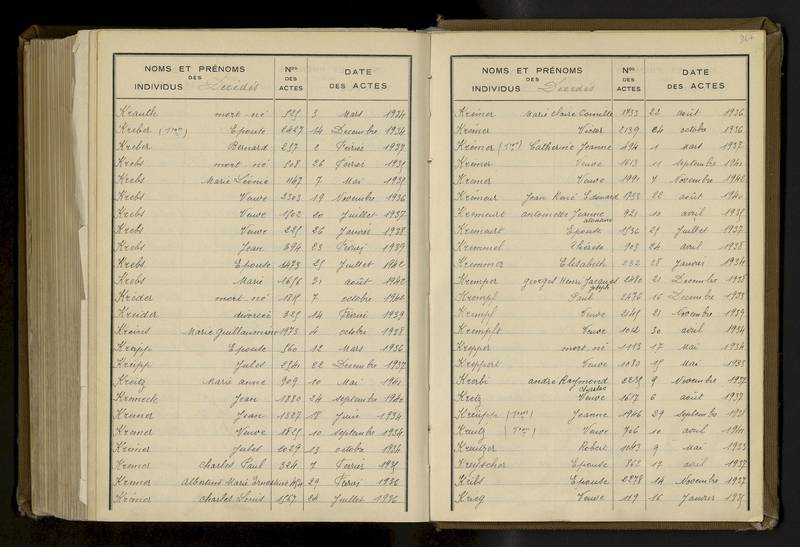 NOMS ET PRÉNOMS DES INDIVIDUS Décédés Nos DES ACTES DATE DES ACTES
Krauth mort né 525 3 Mars 1934
Kreber Epouse 2427 14 Decembre 1934
Kreber Bernard 257 2 Fevrier 1937
Krebs mort né 508 26 Fevrier
Krebs Marie Léonie 1167 7 Mai
Krebs Veuve 2303 19 Novembre 1936
Krebs Veuve 1502 20 Juillet 1937
Krebs Veuve 225 26 Janvier 1938
Krebs Jean 394 23 Fevrier 1939
Krebs Epouse 1473 Juillet 1942
Krebs Marie 1656 31 août 1942
Kreder mort né 7 octobre 1942
Kreider divorcée 325 14 Fevrier 1939
Kreines Marie Guillaumine 1973 4 octobre 1938
Kreipp Epouse 560 12 Mars 1936
Kreipp Jules 22 Decembre 1937
Kreitz Marie anne 909 10 Mai 1941
Kremeck Jean 1880 24 septembre 1942
Kremer Jean 1327 18 Juin 1934
Kremer Veuve 1825 10 septembre 1934
Krémer Jules 2029 13 octobre 1934
Kremer Charles Paul 324 7 Fevrier
Kremer Albertine Marie Ernestine 454 29 Fevrier 1936
Krémer Charles Louis 1567 24 Juillet 1936
NOMS ET PRÉNOMS DES INDIVIDUS Décédés Nos DES ACTES DATE DES ACTES
Kremer Marie Claire Camille 1733 22 août 1936
Krémer Victor 2139 24 octobre 1936
Krémer Catherine Jeanne 494 1 Mars 1937
Kremer Veuve 1613 11 septembre 1941
Kremer Veuve 1991 7 Novembre 1942
Krémeur Jean René Edouard 1733 22 août 1940
Kremeurt antoinette Jeanne 921 10 avril
Kremeurt Epouse 1536 Juillet 1937
Kremmel Thérèse 903 24 avril 1938
Kremmer Elisabeth 232 28 Janvier 1934
Kremper georges Henri Jacques Joseph 2480 21 Decembre 1938
Krempf Paul 2476 16 Decembre 1933
Krempf Veuve 2145 21 Novembre 1939
Krempft Veuve 1012 30 avril 1934
Krepper mort né 1113 17 Mai 1934
Kreppert Veuve 1080 Mai 1933
Krerbi andré Raymond Charles 9 Novembre 1937
Kretz Veuve 1617 6 août 1937
Kreupp Jeanne 1966 29 septembre
Kreutz Veuve 706 10 avril 1941
Kreutzer Robert 1043 9 Mai 1933
Kreutscher Epouse 762 17 avril 1937
Kribs Epouse 2278 14 Novembre 1937
Krieg Veuve 119 16 Janvier